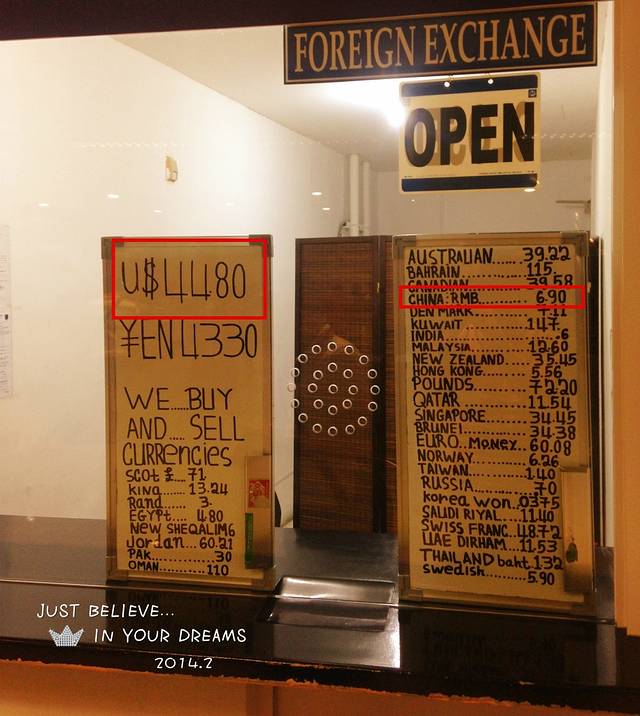 FOREIGN EXCHANGE
OPEN
U$ 4480
¥EN 4330
WE...BUY
AND.... SELL
CURRencies
SCOT £.... 71
KING...... 13.24
Rand....... 3.
EGYPt.... 4.80
NEW SHEQALIM 6
Jordan... 60.21
PAK................ 30
OMAN............ 110
AUSTRALIAN...... 39.22
BAHRAIN........ 115.
CANADIAN........ 39.58
CHINA: RMB.......... 6.90
DEN MARK........ 7.11
KUWAIT............ 147.
INDIA.................. 6
MALAYSIA.......... 12.60
NEW ZEALAND... 35.45
HONG KONG........ 5.56
POUNDS.......... 72.20
QATAR............ 11.54
SINGAPORE...... 34.45
BRUNEI............ 34.38
EURO...Money.. 60.08
NORWAY.......... 6.26
TAIWAN............ 1.40
RUSSIA.............. 70
korea won..0375
SAUDI RIYAL... 11.40
SWISS FRANC..48.72
UAE DIRHAM... 11.53
THAILAND baht 1.32
swedish.......... 5.90
JUST BELIEVE...
IN YOUR DREAMS
2014.2